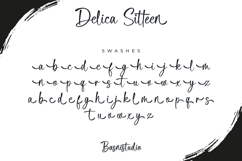 Delica Sitteen
SWASHES
a b c d e f g h i j k l m
n o p q r s t u v w x y z
a b c d e f g h i j k l m n o p q r s
t u v w x y z
Basnistudio